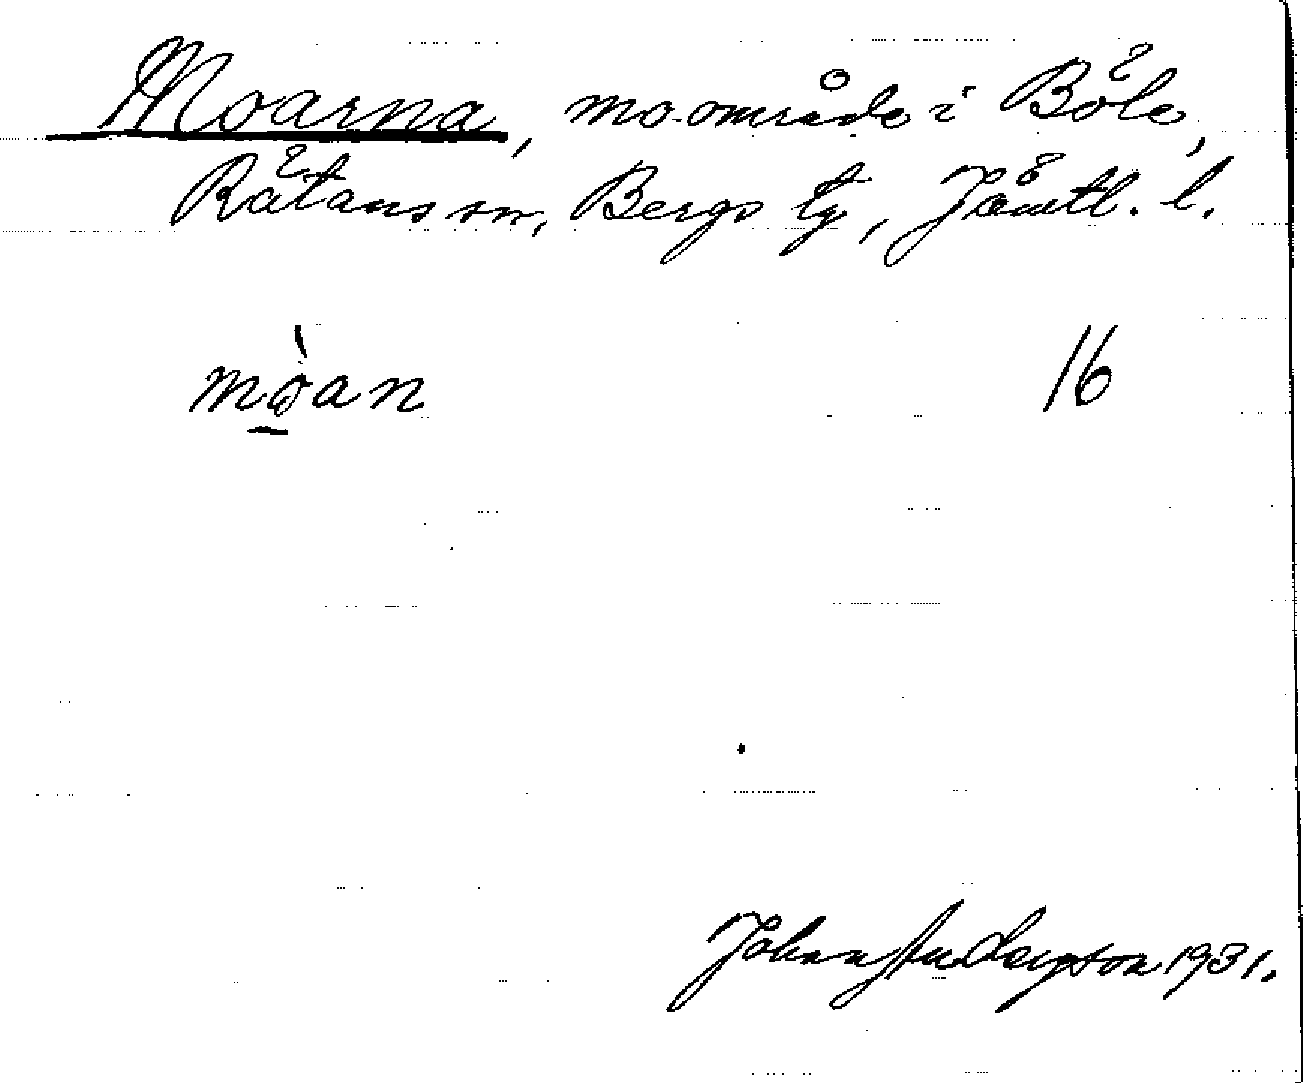 Moarna, mo-område i Böle,
Rätans sn, Bergs tg, Jämtl. l.
mòan 16
Johan Anderson 1931.